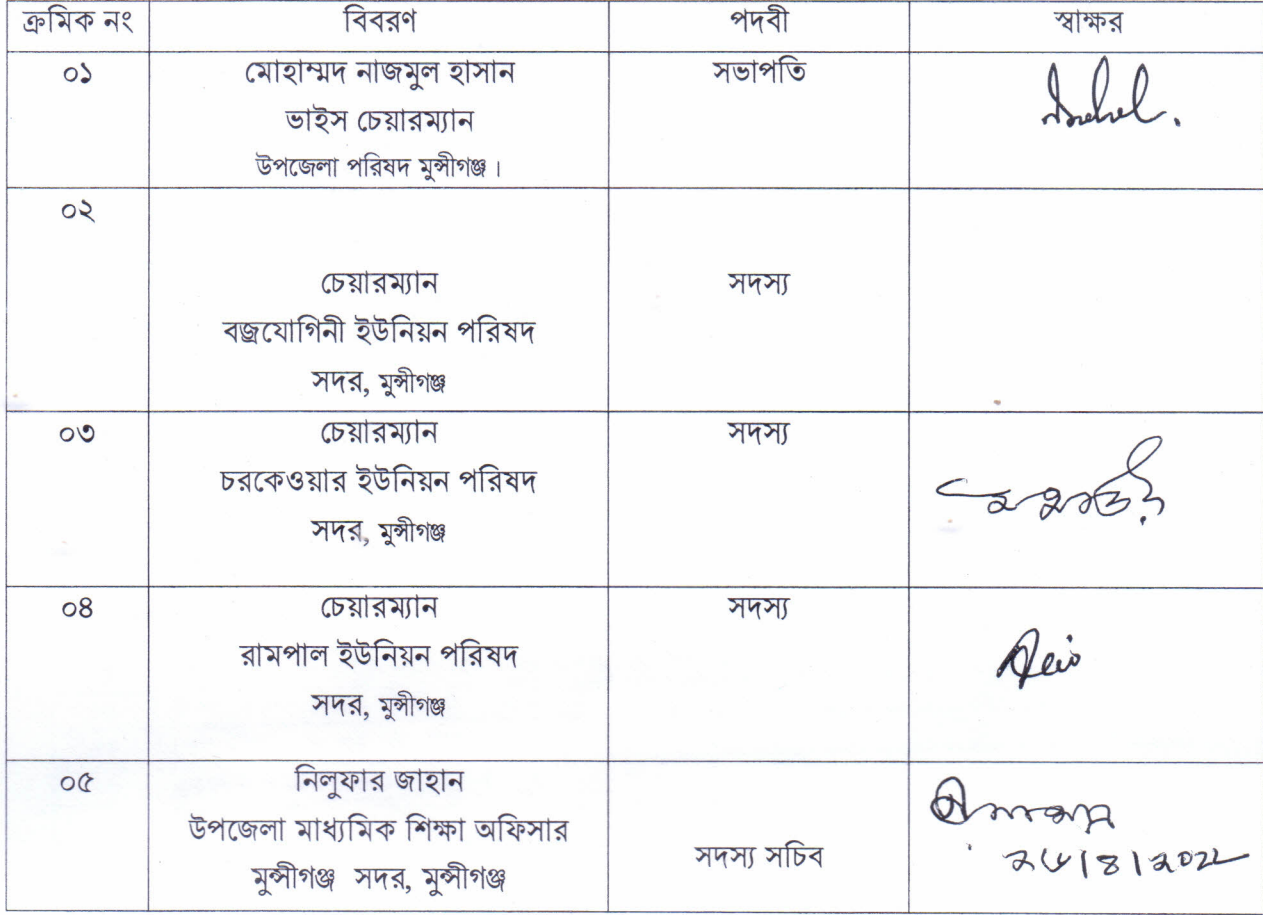 ক্রমিক নং বিবরণ পদবী স্বাক্ষর
০১ মোহাম্মদ নাজমুল হাসান সভাপতি
ভাইস চেয়ারম্যান
উপজেলা পরিষদ মুন্সীগঞ্জ।
০২
চেয়ারম্যান সদস্য
বজ্রযোগিনী ইউনিয়ন পরিষদ
সদর, মুন্সীগঞ্জ
০৩ চেয়ারম্যান সদস্য
চরকেওয়ার ইউনিয়ন পরিষদ
সদর, মুন্সীগঞ্জ
০৪ চেয়ারম্যান সদস্য
রামপাল ইউনিয়ন পরিষদ
সদর, মুন্সীগঞ্জ
০৫ নিলুফার জাহান
উপজেলা মাধ্যমিক শিক্ষা অফিসার
মুন্সীগঞ্জ সদর, মুন্সীগঞ্জ সদস্য সচিব